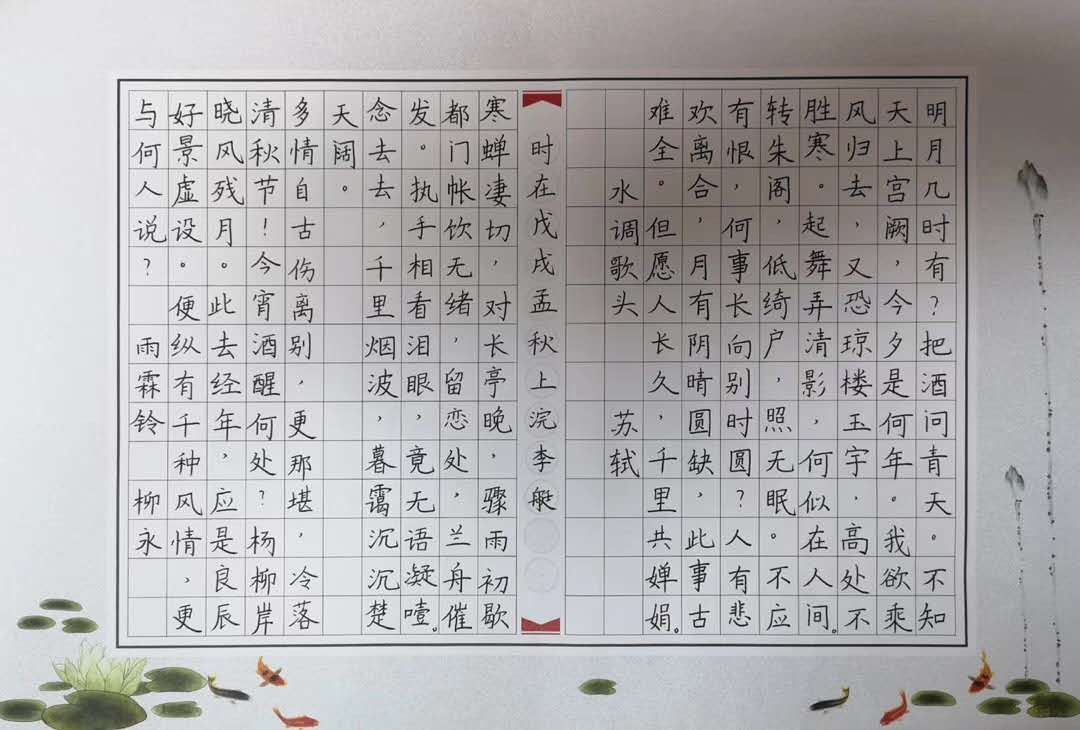 明月几时有？把酒问青天。不知
天上宫阙，今夕是何年。我欲乘
风归去，又恐琼楼玉宇，高处不
胜寒。起舞弄清影，何似在人间。
转朱阁，低绮户，照无眠。不应
有恨，何事长向别时圆？人有悲
欢离合，月有阴晴圆缺，此事古
难全。但愿人长久，千里共婵娟。
水调歌头 苏轼
时在戊戌孟秋上浣李艇
寒蝉凄切，对长亭晚，骤雨初歇
都门帐饮无绪，留恋处，兰舟催
发。执手相看泪眼，竟无语凝噎。
念去去，千里烟波，暮霭沉沉楚
天阔。
多情自古伤离别，更那堪，冷落
清秋节！今宵酒醒何处？杨柳岸
晓风残月。此去经年，应是良辰
好景虚设。便纵有千种风情，更
与何人说？ 雨霖铃 柳永